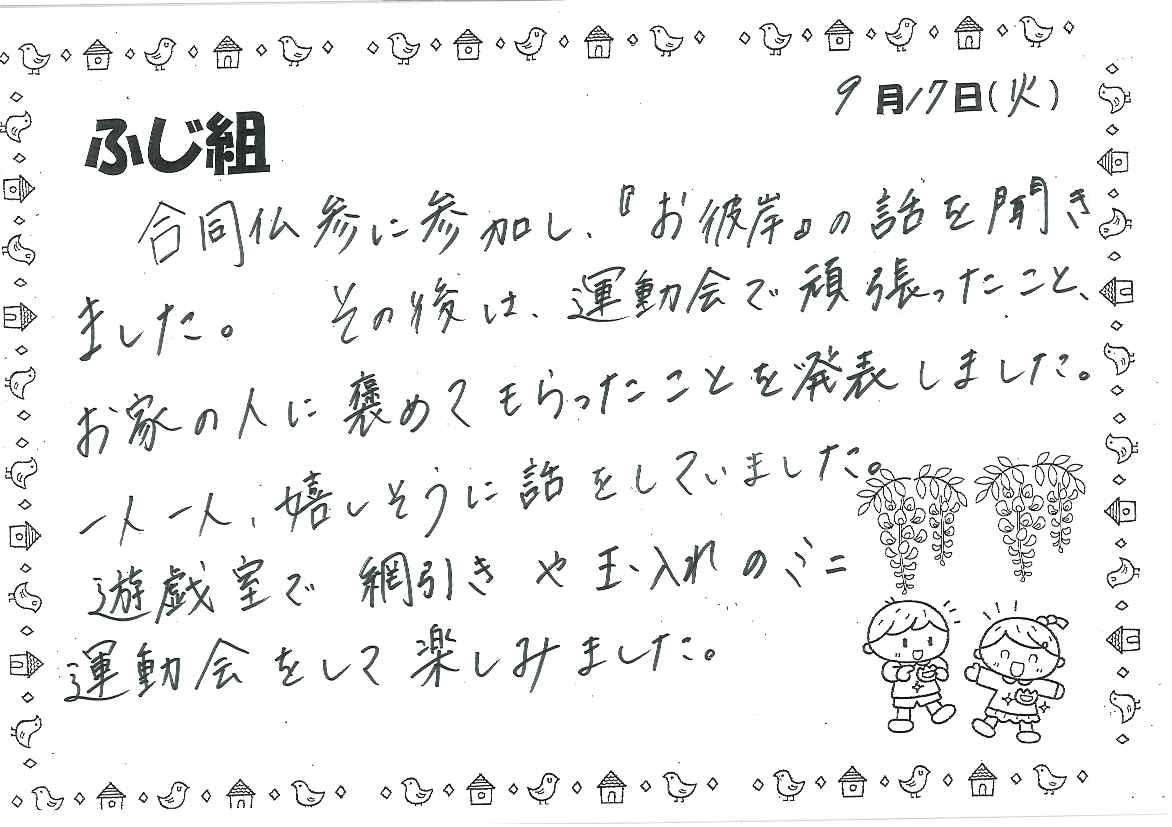 9月17日(火)
ふじ組
合同仏参に参加し、『お彼岸』の話を聞き
ました。 その後は、運動会で頑張ったこと、
お家の人に褒めてもらったことを発表しました。
一人一人、嬉しそうに話をしていました。
遊戯室で綱引きや玉入れのミニ
運動会をして楽しみました。